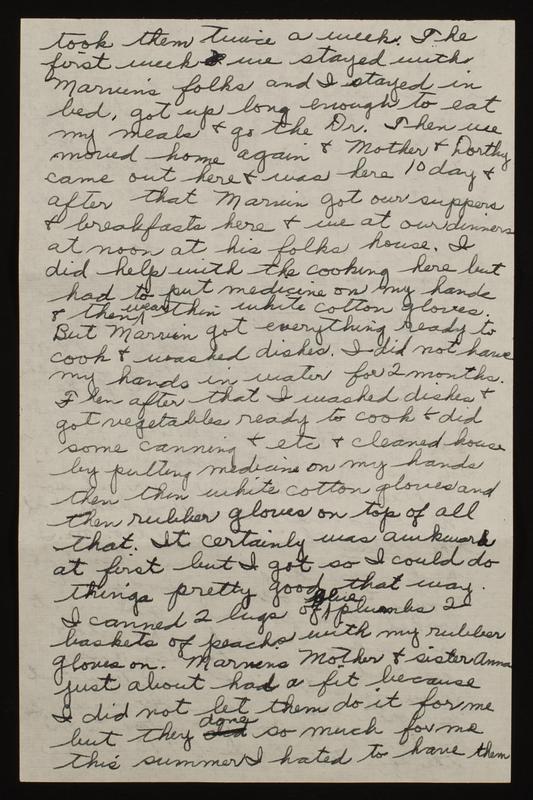 took them twice a week. The
first week we stayed with
Marvin's folks and I stayed in
bed, got up long enough to eat
my meals & go the Dr. Then we
moved home again & Mother & Dorthy
came out here & was here 10 day &
after that Marvin got our suppers
& breakfasts here & we at our dinners
at noon at his folks house. I
did help with the cooking here but
had to put medicine on my hands
& then wear thin white cotton gloves.
But Marvin got everything ready to
cook & washed dishes. I did not have
my hands in water for 2 months.
Then after that I washed dishes &
got vegetables ready to cook & did
some canning & etc & cleaned house
by putting medicine on my hands
then thin white cotton gloves and
then rubber gloves on top of all
that. It certainly was awkward
at first but I got so I could do
things pretty good that way.
I canned 2 lugs of blue plumbs 2
baskets of peachs with my rubber
gloves on. Marvins Mother & sister Anna
just about had a fit because
I did not let them do it for me
but they done so much for me
this summer I hated to have them